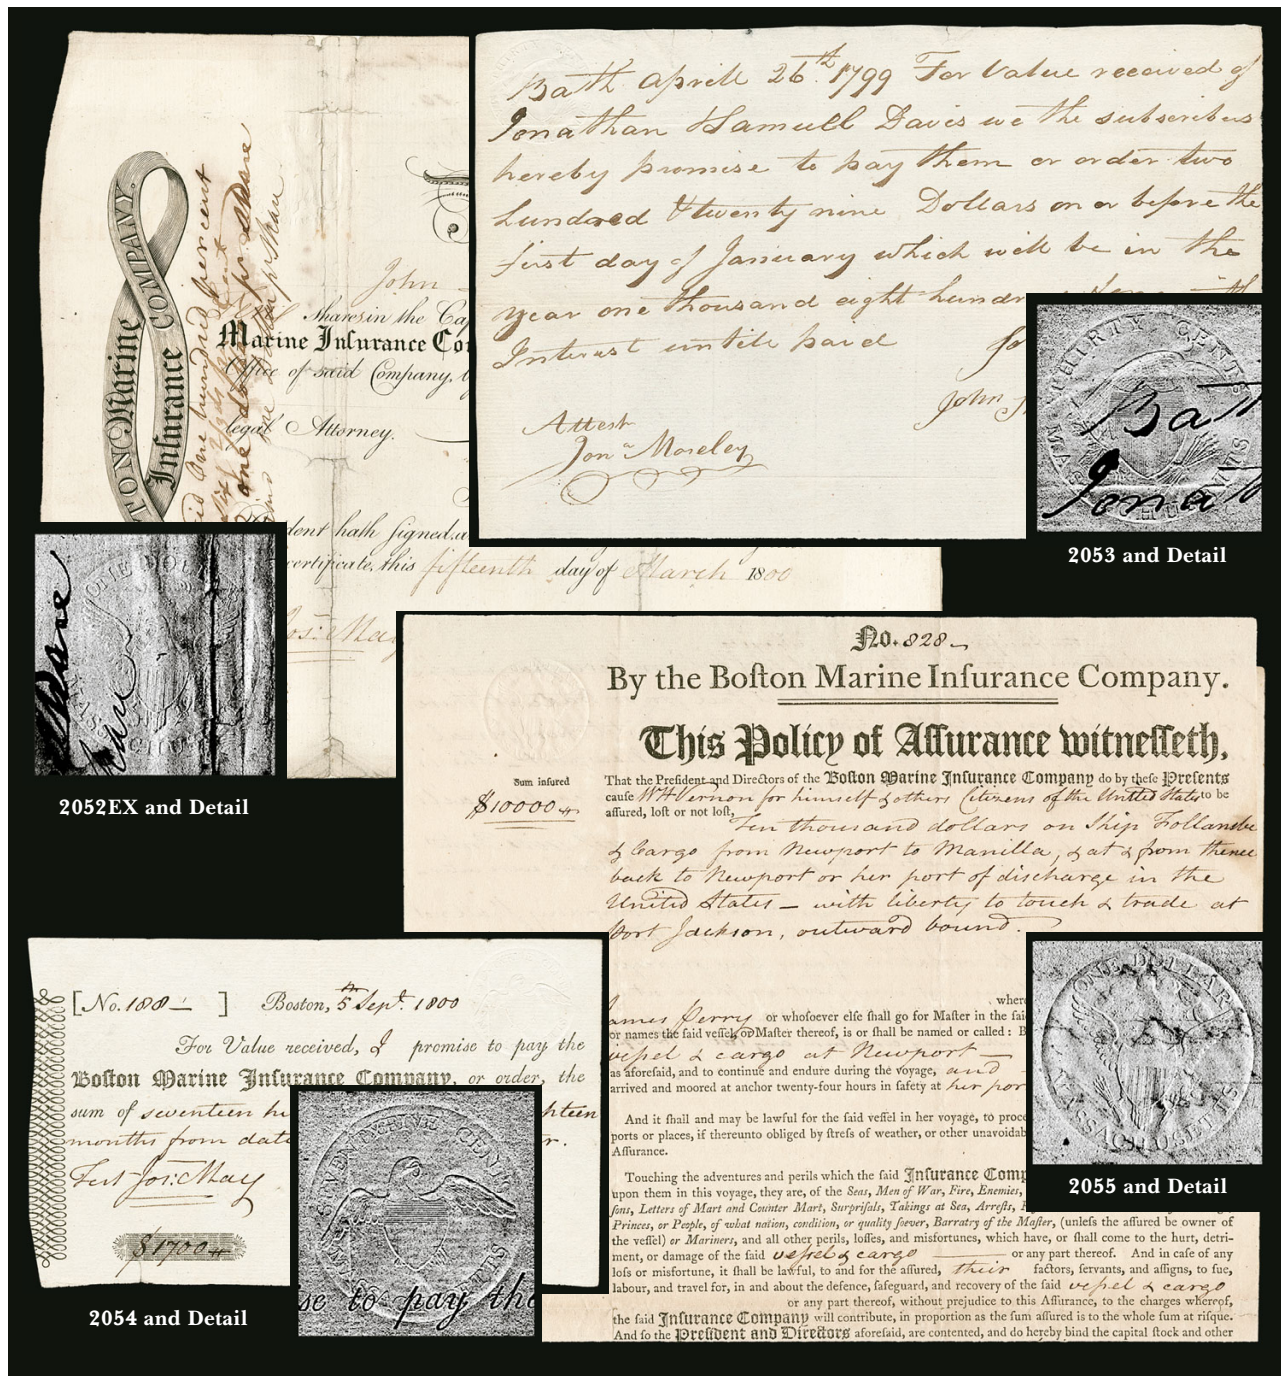 Bath Aprill 26th 1799 For Value received of
Jonathan Samuell Davis we the subscribers
hereby promise to pay them or order two
hundred & twenty nine Dollars on or before the
first day of January which will be in the
year one thousand eight hundr
Interest untill paid
John
Attest
Jona Moseley
THIRTY CENTS
MASSACHUSETTS
Bat
Jonat
2053 and Detail
TON Marine
Insurance COMPANY.
one hundred percent
one doll pr share
pr share
John
Shares in the Cap
Marine Inſurance Co
Office of said Company, b
legal Attorney.
dent hath signed
certificate, this fifteenth day of March 1800
Jos: May
ONE DOLL
2052EX and Detail
No. 828
By the Boſton Marine Inſurance Company.
This Policy of Aſſurance witneſſeth,
Sum inſured
$10000
That the Preſident and Directors of the Boſton Marine Inſurance Company do by theſe Preſents
cauſe W H Vernon for himself & others Citizens of the United States to be
aſſured, loſt or not loſt,
Ten thousand dollars on Ship Follansbe
& Cargo from Newport to Manilla, & at & from thence
back to Newport or her port of discharge in the
United States – with liberty to touch & trade at
Port Jackson, outward bound.
where
ames Perry or whoſoever elſe ſhall go for Maſter in the ſaid
or names the ſaid veſſel, or Maſter thereof, is or ſhall be named or called : B
veſsel & cargo at Newport —
as aforeſaid, and to continue and endure during the voyage, and
arrived and moored at anchor twenty-four hours in ſafety at her por
And it ſhall and may be lawful for the ſaid veſſel in her voyage, to proce
ports or places, if thereunto obliged by ſtreſs of weather, or other unavoidab
Aſſurance.
Touching the adventures and perils which the ſaid Inſurance Comp
upon them in this voyage, they are, of the Seas, Men of War, Fire, Enemies,
ſons, Letters of Mart and Counter Mart, Surpriſals, Takings at Sea, Arreſts,
Princes, or People, of what nation, condition, or quality ſoever, Barratry of the Maſter, (unleſs the aſſured be owner of
the veſſel) or Mariners, and all other perils, loſſes, and misfortunes, which have, or ſhall come to the hurt, detri-
ment, or damage of the ſaid veſsel & cargo or any part thereof. And in caſe of any
loſs or misfortune, it ſhall be lawful, to and for the aſſured, their factors, ſervants, and aſſigns, to ſue,
labour, and travel for, in and about the defence, ſafeguard, and recovery of the ſaid veſsel & cargo
or any part thereof, without prejudice to this Aſſurance, to the charges whereof,
the ſaid Inſurance Company will contribute, in proportion as the ſum aſſured is to the whole ſum at riſque.
And ſo the Preſident and Directors aforeſaid, are contented, and do hereby bind the capital ſtock and other
ONE DOLLAR
MASSACHUSETTS
2055 and Detail
[No. 188 ] Boston, 5th Sept. 1800
For Value received, I promise to pay the
Boſton Marine Inſurance Company, or order, the
sum of seventeen hu ghteen
months from date r.
Test Jos: May
$1700
SEVENTY FIVE CENTS
se to pay the
2054 and Detail